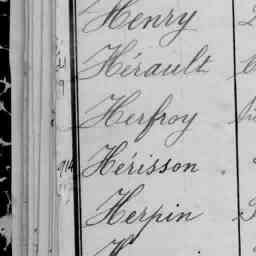 Henry
Hérault
Herfroy
Hérisson
Herpin